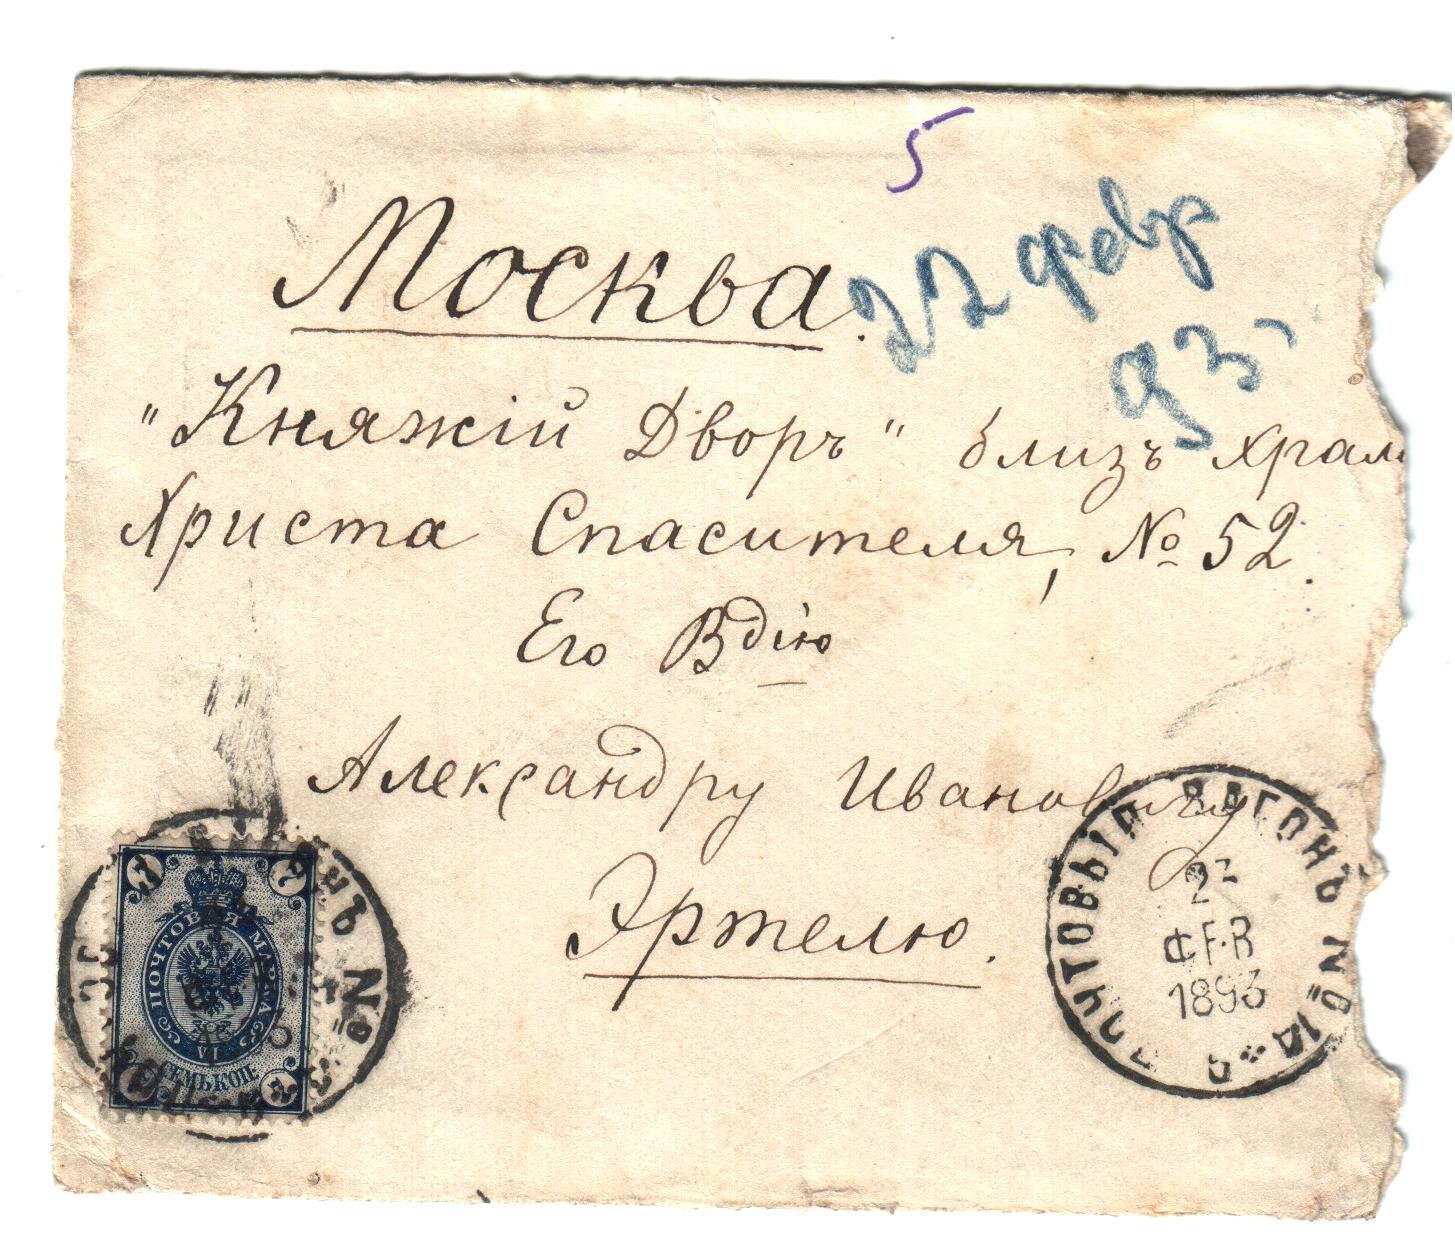 5
Москва.
22 февр
93
"Княжій Дворъ" близъ храм
Христа Спасителя, № 52.
Его Вдію
Александру Ивановичу
Эртелю.
ПОЧТОВЫЙ ВАГОНЪ №
ФЕВ
1893
7 7
ПОЧТОВАЯ МАРКА
СЕМЬ КОП.